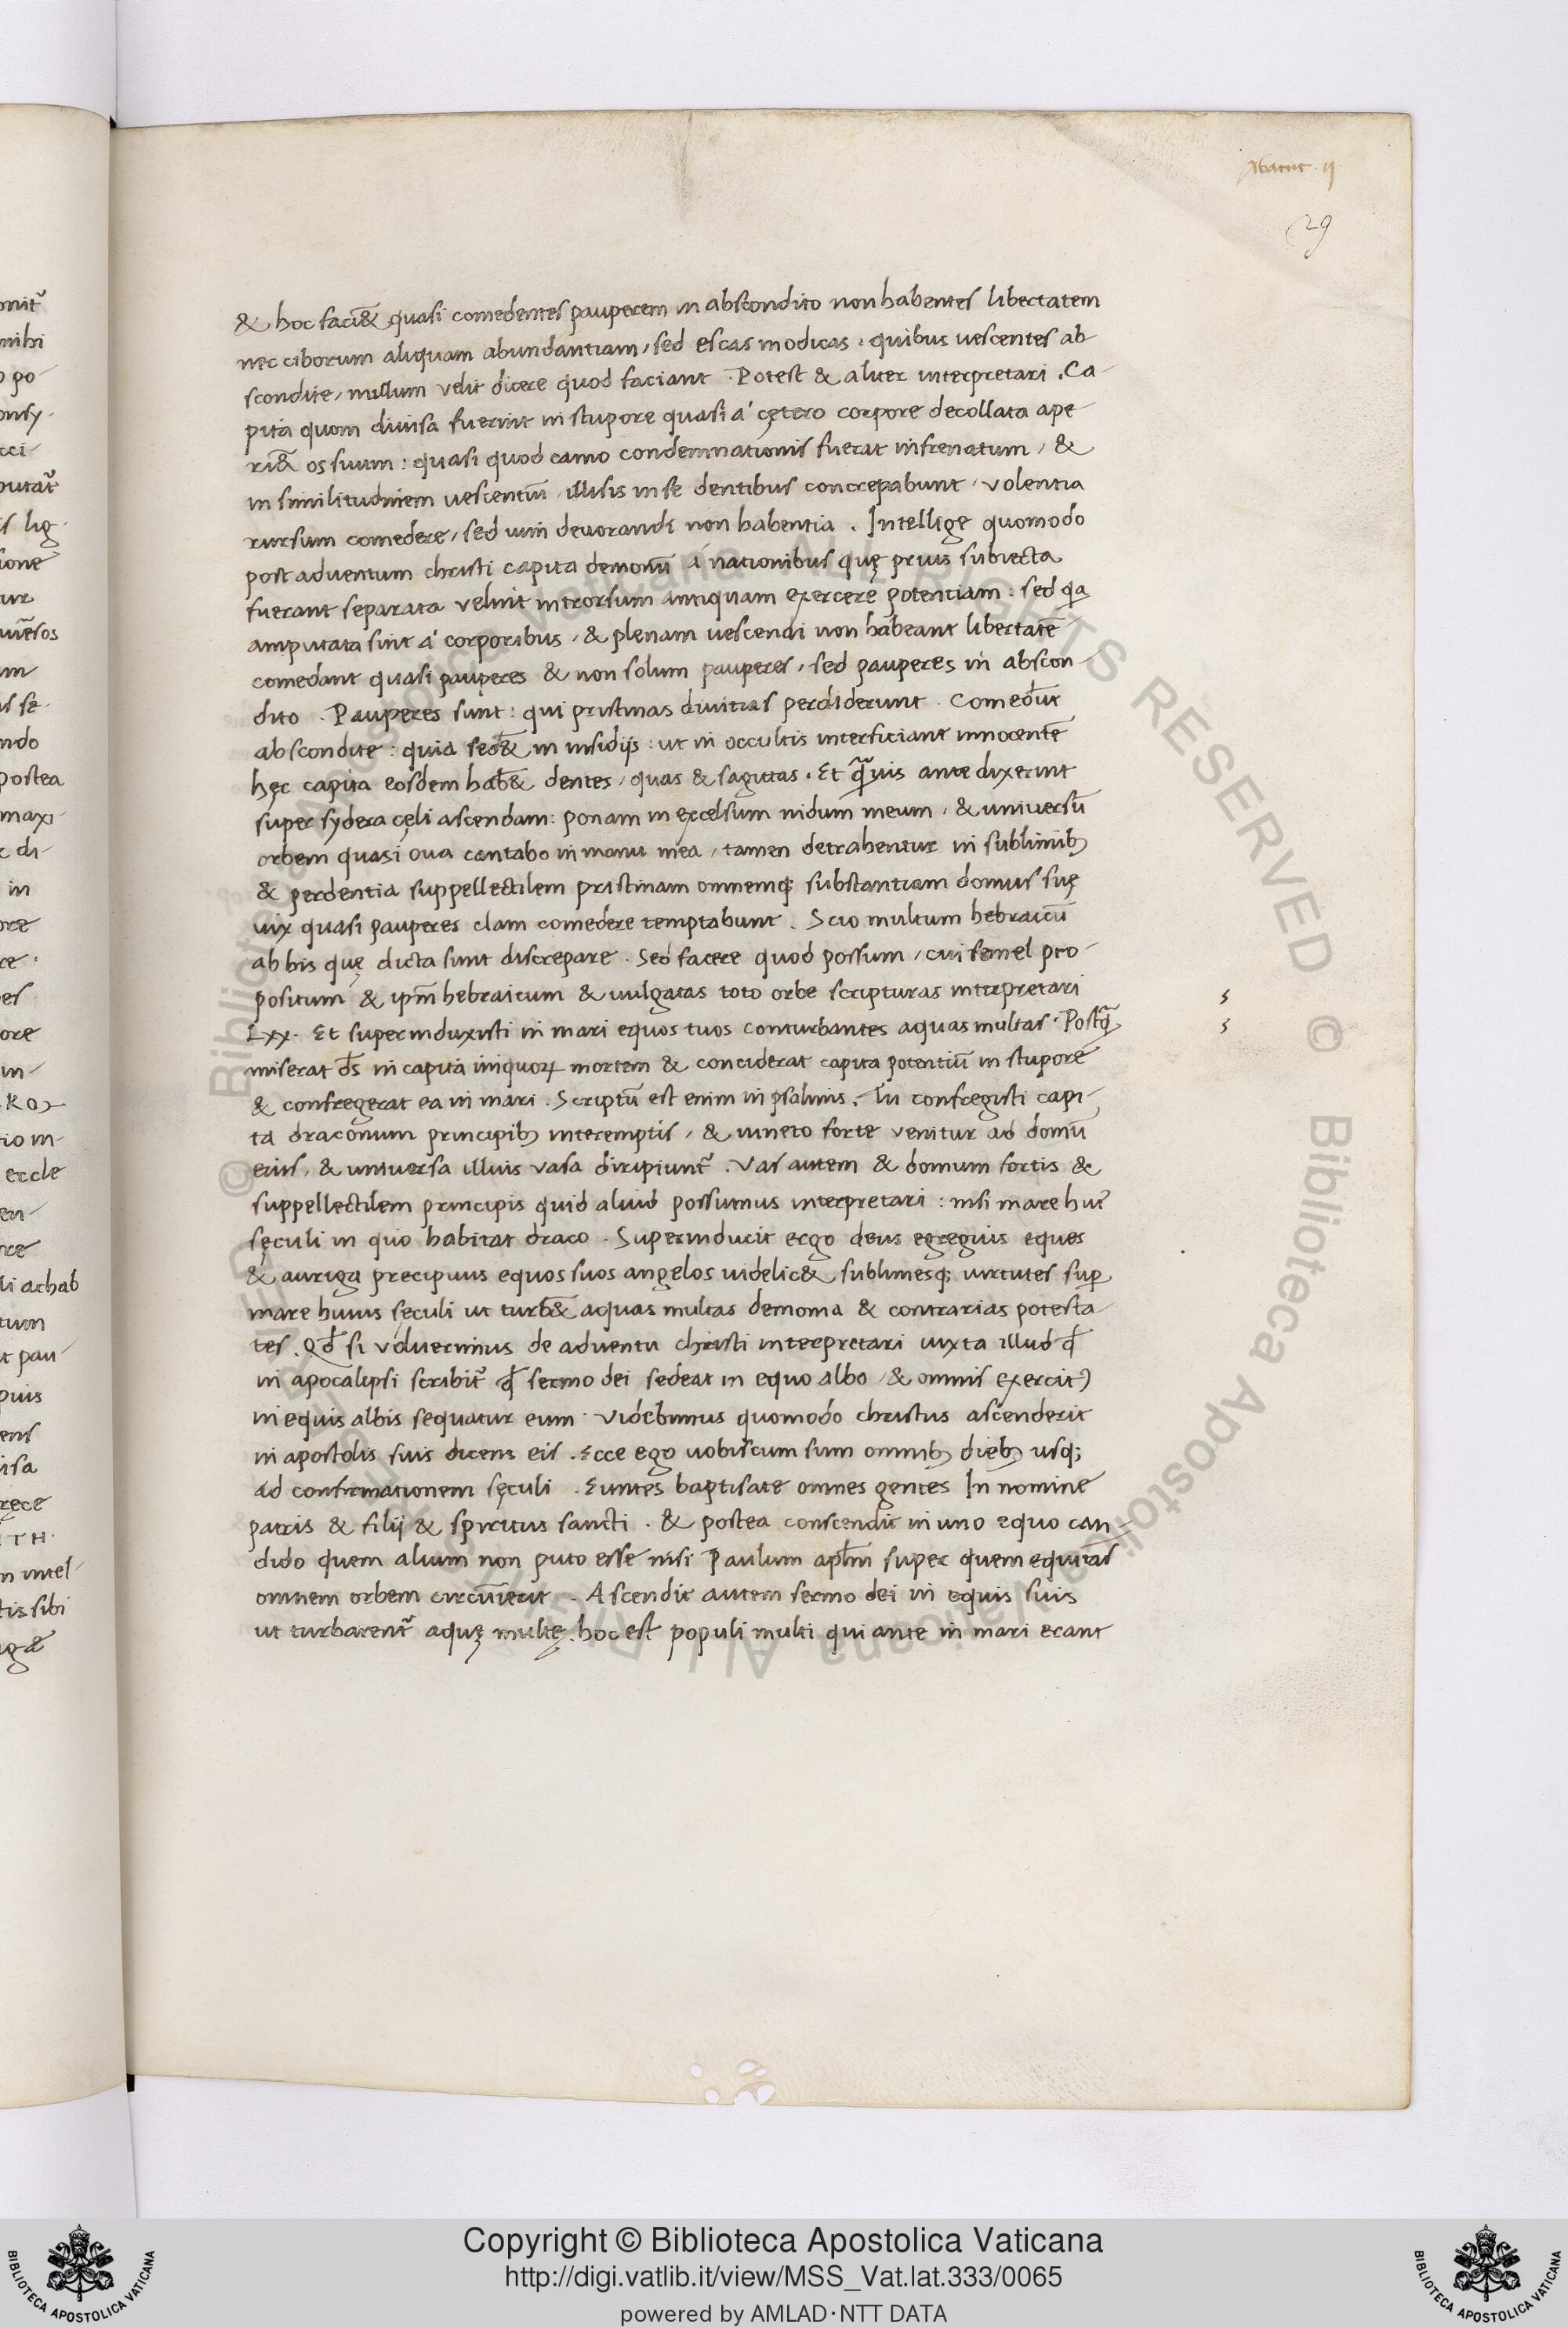 Abacuc · ij
29
& hoc faci& quasi comedentes pauperem in abscondito non habentes libertatem
nec ciborum aliquam abundantiam, sed escas modicas: quibus uescentes ab-
scondite, nullum velit dicere quod faciant. Potest & aliter interpretari. Ca-
pita quom diuisa fuerint in stupore quasi a' cętero corpore decollata ape-
ri& os suum: quasi quod camo condemnationis fuerat infrenatum, &
in similitudinem uescentiū, illisis in se dentibus concrepabunt, volentia
rursum comedere, sed uim deuorandi non habentia. Intellige quomodo
post aduentum christi capita demonū a' nationibus quę prius subiecta
fuerant separata velint introrsum antiquam exercere potentiam: sed qa
amputata sint a' corporibus, & plenam uescendi non habeant libertatē
comedant quasi pauperes & non solum pauperes, sed pauperes in abscon-
dito. Pauperes sunt: qui pristinas diuitias perdiderunt. Comedūt
abscondite: quia sed& in insidijs: ut in occultis interficiant innocentē
hęc capita eosdem hab& dentes, quas & sagittas. Et q̄uis ante dixerint
super sydera cęli ascendam: ponam in excelsum nidum meum, & uniuersū
orbem quasi oua cantabo in manu mea, tamen detrahentur in sublimib;
& perdentia suppellectilem pristinam omnemq; substantiam domus suę
uix quasi pauperes clam comedere temptabunt. Scio multum hebraicū
ab his quę dicta sunt discrepare. Sed facere quod possum, cui semel pro-
positum & ipm̄ hebraicum & uulgatas toto orbe scripturas interpretari
Lxx. Et superinduxisti in mari equos tuos conturbantes aquas multas. Postq̄
miserat ds̄ in capita iniquoꝝ mortem & conciderat capita potentiū in stupore
& confregerat ea in mari. Scriptū est enim in psalmis. Tu confregisti capi-
ta draconum principib; interemptis, & uincto forte venitur ad domū
eius, & uniuersa illius vasa diripiunt᷑. Vas autem & domum fortis &
suppellectilem principis quid aliud possumus interpretari: nisi mare hui᷒
sęculi in quo habitat draco. Superinducit ergo deus egregius eques
& auriga precipuus equos suos angelos uidelic& sublimesq; uirtutes suꝑ
mare huius sęculi ut turb& aquas multas demonia & contrarias potesta-
tes. Qd̄ si voluerimus de aduentu christi interpretari iuxta illud qd̄
in apocalipsi scribit᷑ qd̄ sermo dei sedeat in equo albo, & omnis exercit᷒
in equis albis sequatur eum. Videbimus quomodo christus ascenderit
in apostolis suis dicens eis. Ecce ego uobiscum sum omnib; dieb; usq;
ad confirmationem sęculi. Euntes baptisate omnes gentes In nomine
patris & filij & spiritus sancti. & postea conscendit in uno equo can-
dido quem alium non puto esse nisi Paulum apl̄m super quem equitās
omnem orbem circūierit. Ascendit autem sermo dei in equis suis
ut turbarent᷑ aquę multę, hoc est populi multi qui ante in mari erant
Copyright © Biblioteca Apostolica Vaticana
http://digi.vatlib.it/view/MSS_Vat.lat.333/0065
powered by AMLAD·NTT DATA